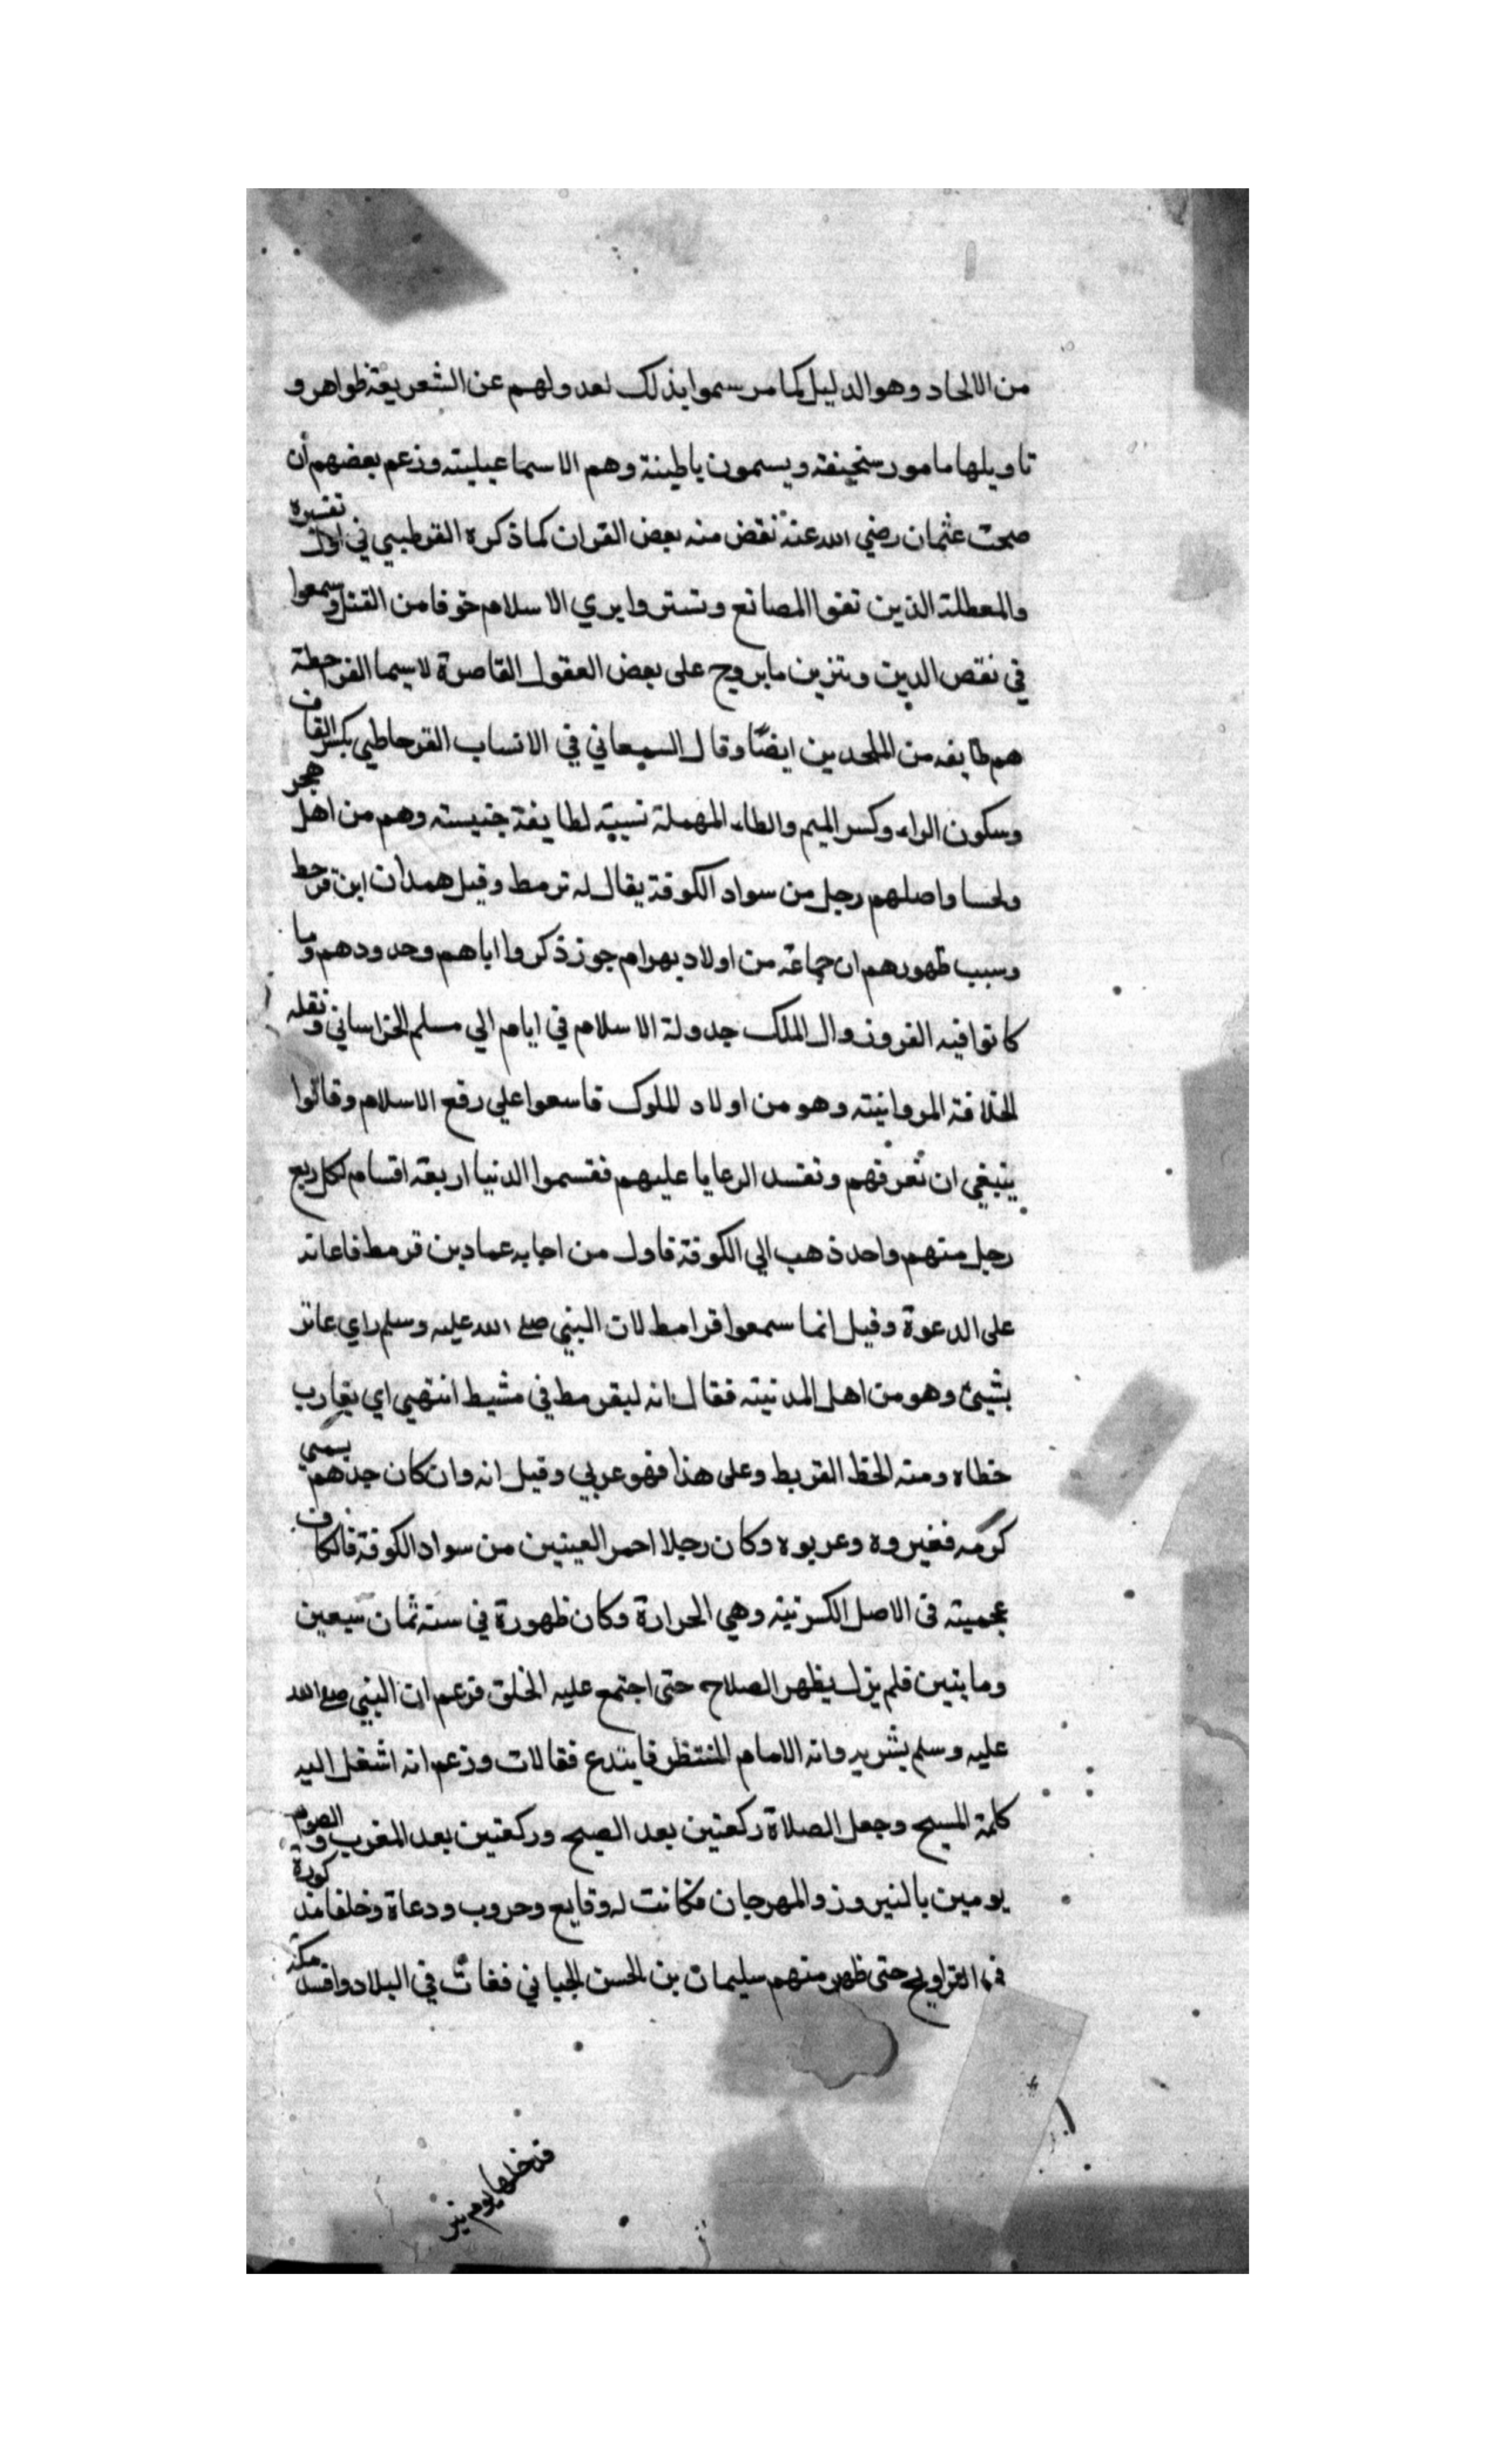 من الالحاد وهو الدليل كما مر سموا بذلك لعدولهم عن الشعريعة ظواهر و
تاويلها مامور سنحيفة ويسمون باطينة وهم الاسماعيليته وزعم بعضهم أن
صحت عثمان رضي الله عنه نقض منه بعض القران كما ذكره القرطبي في اول تفسيره
والمعطلة الذين تفوا المصانع وتستروا بري الاسلام خوفا من القتل وسمعوا
في نقص الدين وتنزين ما يروج على بعض العقول القاصرة لاسيما القراحطة
هم طايفه من الملحدين ايضًا وقال السمعاني في الانساب القرحاطي بكسر القاف
وسكون الراء وكسر الميم والطاء المهملة نسبة لطايفة جنيسته وهم من اهل هجر
ولحسا واصلهم رجل من سواد الكوفة يقال له ترمط وقيل همدان ابن قرحط
وسبب ظهورهم ان جماعة من اولاد بهرام جوز ذكروا اباهم وحدودهم وما
كانوا فيه الفروزوال الملك جدولة الاسلام في ايام الي مسلم الخراساني ونقله
الخلافة المروانيته وهو من اولاد الملوك فاسعوا علي رفع الاسلام وقالوا
ينبغي ان نعرفهم ونفسد الرعايا عليهم فقسموا الدنيا اربعة اقسام لكل ربع
رجل منهم واحد ذهب الي الكوفة فاول من اجابه عمادبن قرمط فاعانه
على الدعوة وقيل انما سمعوا قرامط لان النبي صلى الله عليه وسلم راي عانز
بشيئ وهو من اهل المدنيته فقال انه ليقرمط في مشيط انتهي اي يقارب
خطاه ومنه الخط القربط وعلى هذا فهو عربي وقيل انه وان كان جدهم يسمي
كرمه فغيروه وعربوه وكان رجلا احمر العينين من سواد الكوفة فالكاف
عجميته في الاصل الكرنيته وهي الحرارة وكان ظهورة في سنه ثمان سبعين
وماينين فلم يزل يظهر الصلاح حتى اجتمع عليه الخلق فزعم ان النبي صلى الله
عليه وسلم بشر به وانه الامام المنتظر فابتدع فقالات وزعم انه اشغل اليه
كلمة المسيح وجعل الصلاة ركعتين بعد الصبح وركعتين بعد المغرب والصوم
يومين بالنيروز والمهرجان فكانت له وقايع وحروب ودعاة وخلفا مذكورة
في التواريخ حتى ظهر منهم سليمان بن الحسن الجياني فغاث في البلاد وافسد مكة
فدخلها يوم